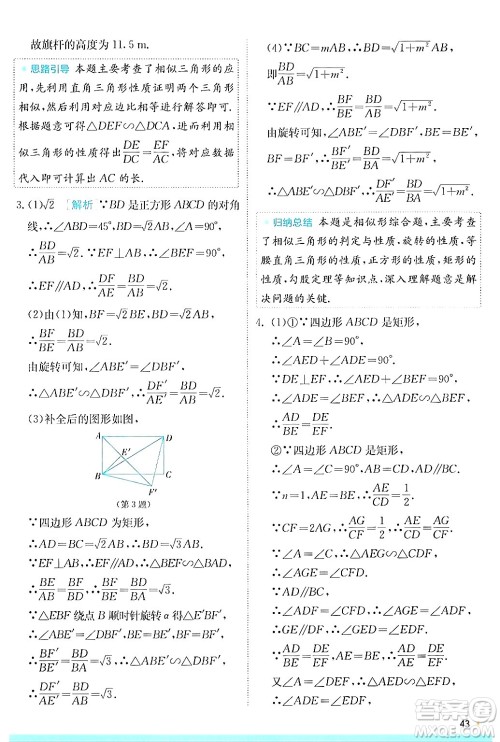 故旗杆的高度为 11.5 m.
思路引导 本题主要考查了相似三角形的应
用,先利用直角三角形性质证明两个三角形
相似,然后利用对应边成比例进行解答即可.
根据题意可得△DEF∽△DCA,进而根据相
似三角形的性质得出 DE/DC=EF/AC,将对应数据
代入即可计算出 AC 的长.
3.(1)√2 [解析] ∵BD 是正方形 ABCD 的对角
线,∴∠ABD=45°,∴BD/AB=√2.∵EF⊥AB,
∴∠BEF=90°,∴BF/BE=√2,∴DF/AE=√2.
(2)由(1)知,BF=√2BE,BD=√2AB,
∴BF/BE=BD/AB=√2.
由旋转可知,∠ABE′=∠DBF′,
∴△ABE′∽△DBF′,∴DF′/AE′=BD/AB=√2.
(3)补全后的图形如图,
A
D
E′
B
C
F′
(第 3 题)
∵四边形 ABCD 为矩形,
∴AD=BC=√2AB,∴BD=√3AB.
∵EF⊥AB,∴EF∥AD,∴△BEF∽△BAD,
∴BE/BA=BF/BD,∴BF/BE=BD/BA=√3.
∵△EBF 绕点 B 顺时针旋转 α 得到△E′BF′,
∴∠ABE′=∠DBF′,BE′=BE,BF′=BF,
∴BF′/BE′=BD/AB=√3,∴△ABE′∽△DBF′,
∴DF′/AE′=BD/AB=√3.
(4)∵BC=mAB,∴BD=√1+m²AB,
即BD/AB=√1+m².
∵EF∥AD,∴BF/BE=BD/BA=√1+m².
由旋转可知,∠ABE′=∠DBF′,
∴△ABE′∽△DBF′,
∴DF′/AE′=BD/BA=√1+m².
归纳总结 本题是相似形综合题,主要考查
了相似三角形的判定与性质,旋转的性质,等
腰直角三角形的性质,正方形的性质,矩形的
性质,勾股定理等知识点,深入理解题意是解
决问题的关键.
4.(1)①∵四边形 ABCD 是矩形,
∴∠A=∠B=90°,∴∠A+∠ADE=90°.
∵DE⊥EF,∴∠AED+∠BEF=90°,
∴∠ADE=∠BEF,∴△AED∽△BFE,
∴AD/BE=DE/EF.
②∵四边形 ABCD 是矩形,
∴∠A=∠C=90°,AB∥CD,AB=CD.
∵n=1,∴AE=BE,∴AE/CD=AE/AB=1/2.
∵CF=2AG,∴AG/CF=1/2,∴AE/CD=AG/CF,
∴△AEG∽△CDF,
∴∠AGE=∠CFD.
∵AD∥BC,∴∠ADF=∠CFD,
∴∠AGE=∠ADF,
∴GE∥DF,∴∠GED=∠EDF.
由①得,AD/BE=DE/EF,AE=BE,∴AD/AE=DE/EF.
又∵∠A=∠DEF,∴△ADE∽△EDF,
∴∠AED=∠EFD.
43